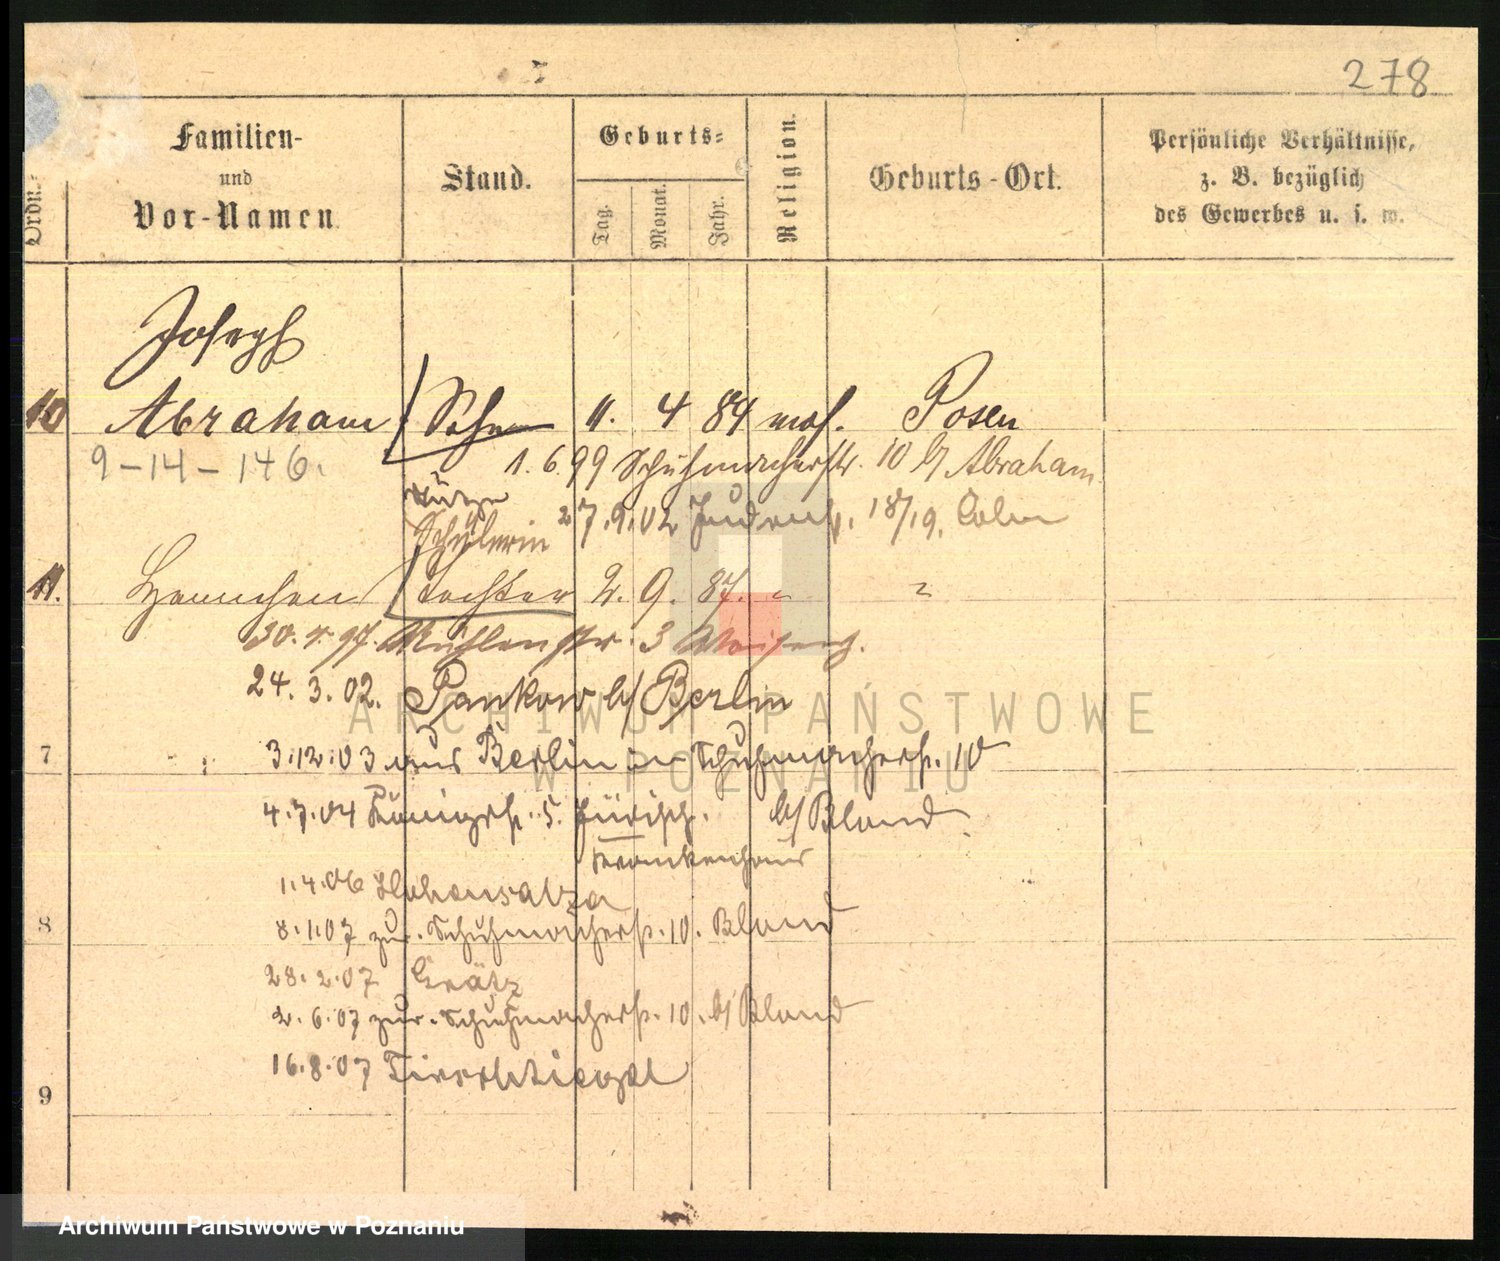 278
Ordn.=
Familien-
und
Vor-Namen.
Stand.
Geburts=
Tag.
Monat.
Jahr.
Religion.
Geburts-Ort.
Persönliche Verhältnisse,
z. B. bezüglich
des Gewerbes u. s. w.
Joseph
10 Abraham Sohn 11. 4 84 mos. Posen
9-14-146.
1. 6. 99 Schuhmacherstr. 10 b/ Abraham
27.9.02 Judenstr. 18/19. Cohn
Schülerin
11. Hannchen Tochter 2. 9. 87. " "
30. 4. 97. Mühlenstr. 3
24. 3. 02. Pankow b/ Berlin
7
3.12.03 aus Berlin Schuhmacherstr. 10
4.7.04 Königstr. 5. Jüdisch. b/ Bland.
Krankenhaus
1.4.06 Hohensalza
8
8.1.07 zur. Schuhmacherstr. 10. Bland
28.2.07 Grätz
2.6.07 zur. Schuhmacherstr. 10. b/ Bland
16.8.07 Tirschtiegel
9
ARCHIWUM PAŃSTWOWE
W POZNANIU
Archiwum Państwowe w Poznaniu